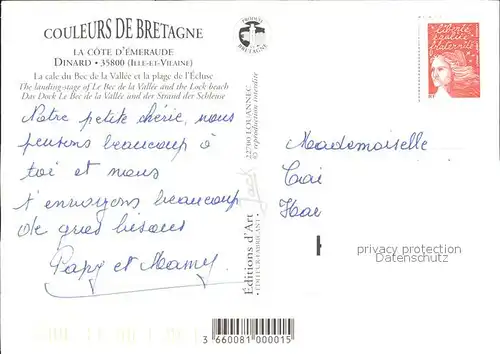 COULEURS DE BRETAGNE
LA CÔTE D'ÉMERAUDE
DINARD • 35800 (ILLE-ET-VILAINE)
La cale du Bec de la Vallée et la plage de l'Écluse
The landing-stage of Le Bec de la Vallée and the Lock beach
Das Dock Le Bec de la Vallée und der Strand der Schleuse
PRODUIT
BRETAGNE
liberté
égalité
fraternité
RF
Notre petite chérie, nous
pensons beaucoup à
toi et nous
t'envoyons beaucoup
de gros bisous
Papy et Mamy
22700 LOUANNEC
© reproduction interdite
Jack
Éditions d'Art
ÉDITEUR-FABRICANT
Mademoiselle
privacy protection
Datenschutz
3 660081 000015